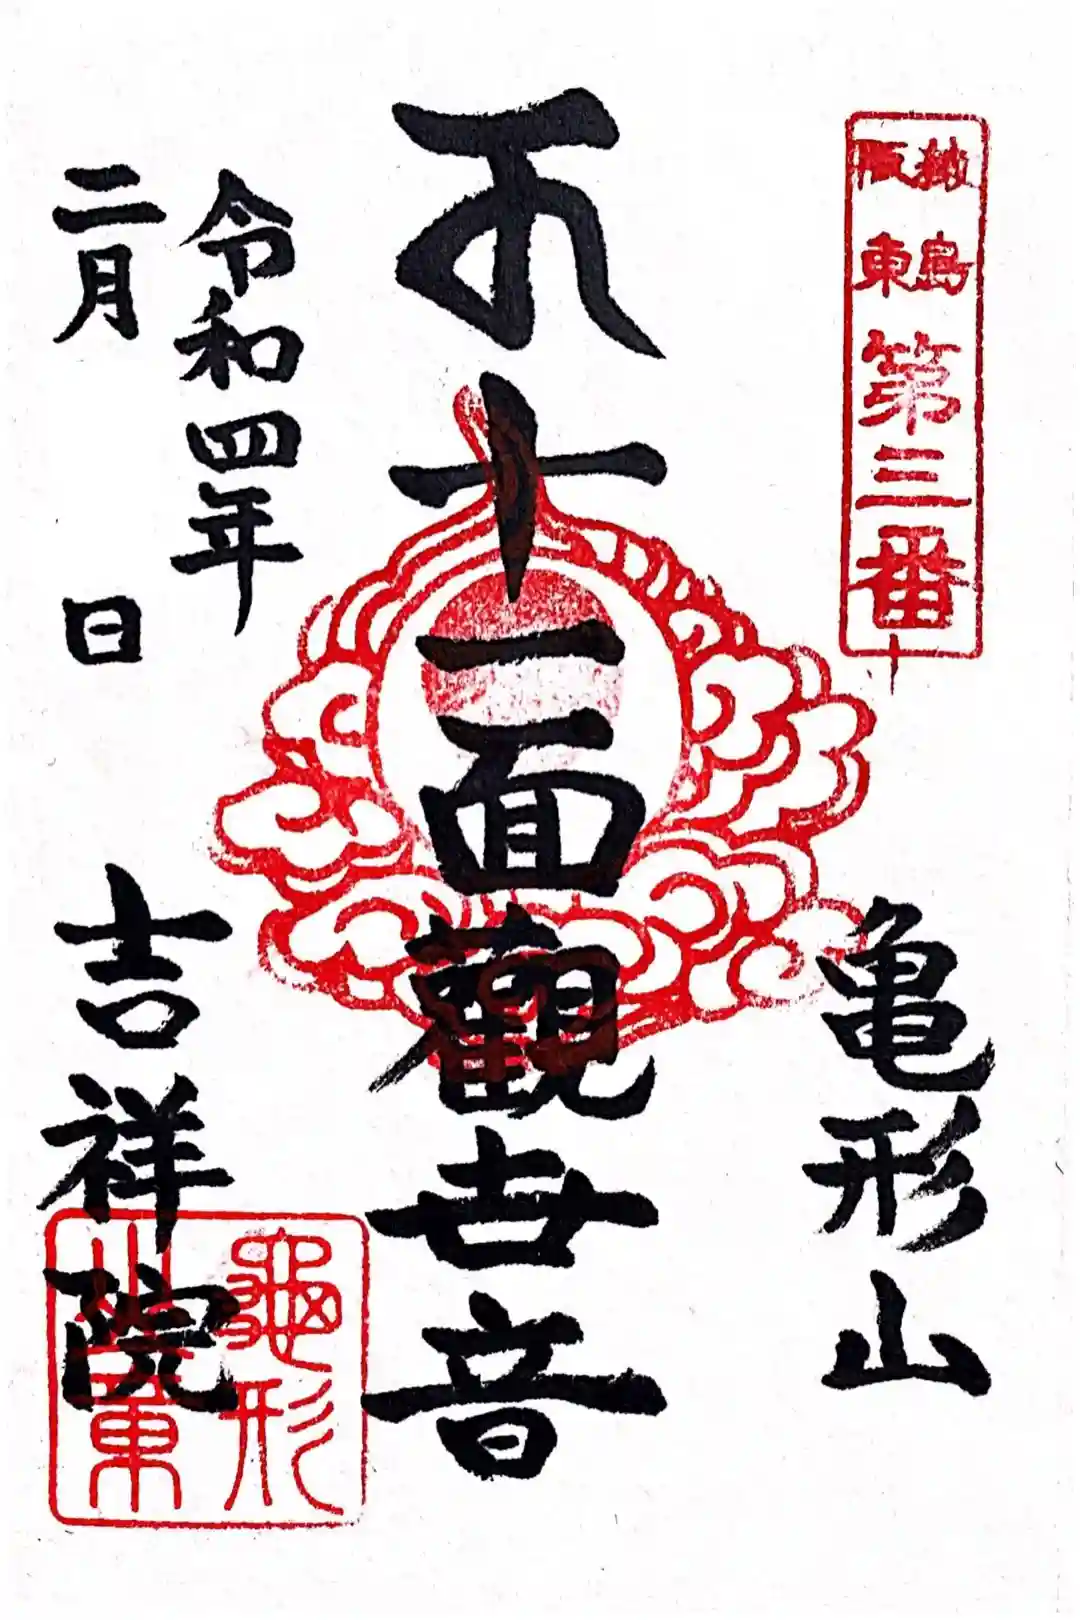 猿島
阪東
第三番
亀形山
十一面觀世音
令和四年
二月 日
吉祥院
龜形